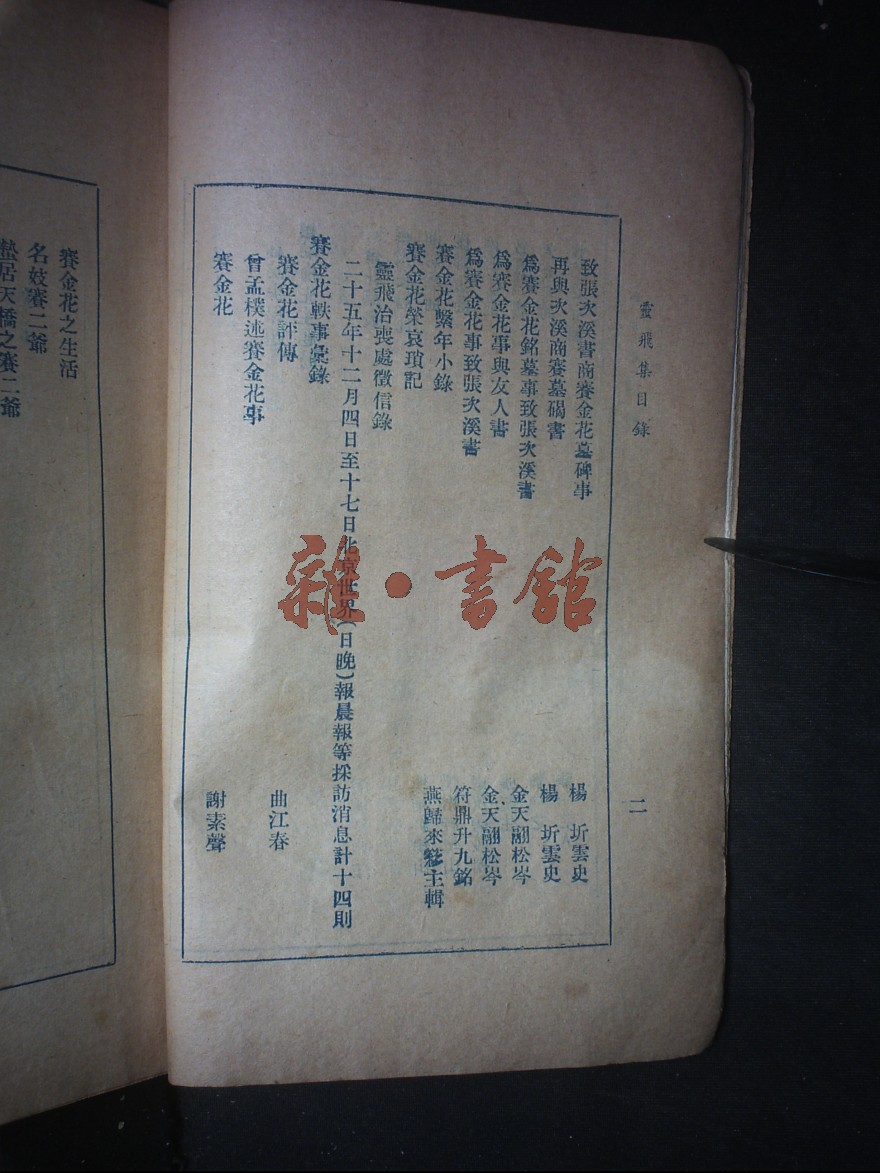 靈飛集目錄
二
致張次溪書商賽金花墓碑事 楊圻雲史
再與次溪商賽墓碣書 楊圻雲史
爲賽金花銘墓事致張次溪書 金天翮松岑
爲賽金花事與友人書 金天翮松岑
爲賽金花事致張次溪書 符鼎升九銘
賽金花繫年小錄 燕歸來簃主輯
賽金花榮哀瑣記
靈飛治喪處徵信錄
二十五年十二月四日至十七日北京世界(日晚)報晨報等採訪消息計十四則
賽金花軼事彙錄
賽金花評傳 曲江春
曾孟樸述賽金花事
賽金花 謝素聲
賽金花之生活
名妓賽二爺
蟄居天橋之賽二爺
雜·書館